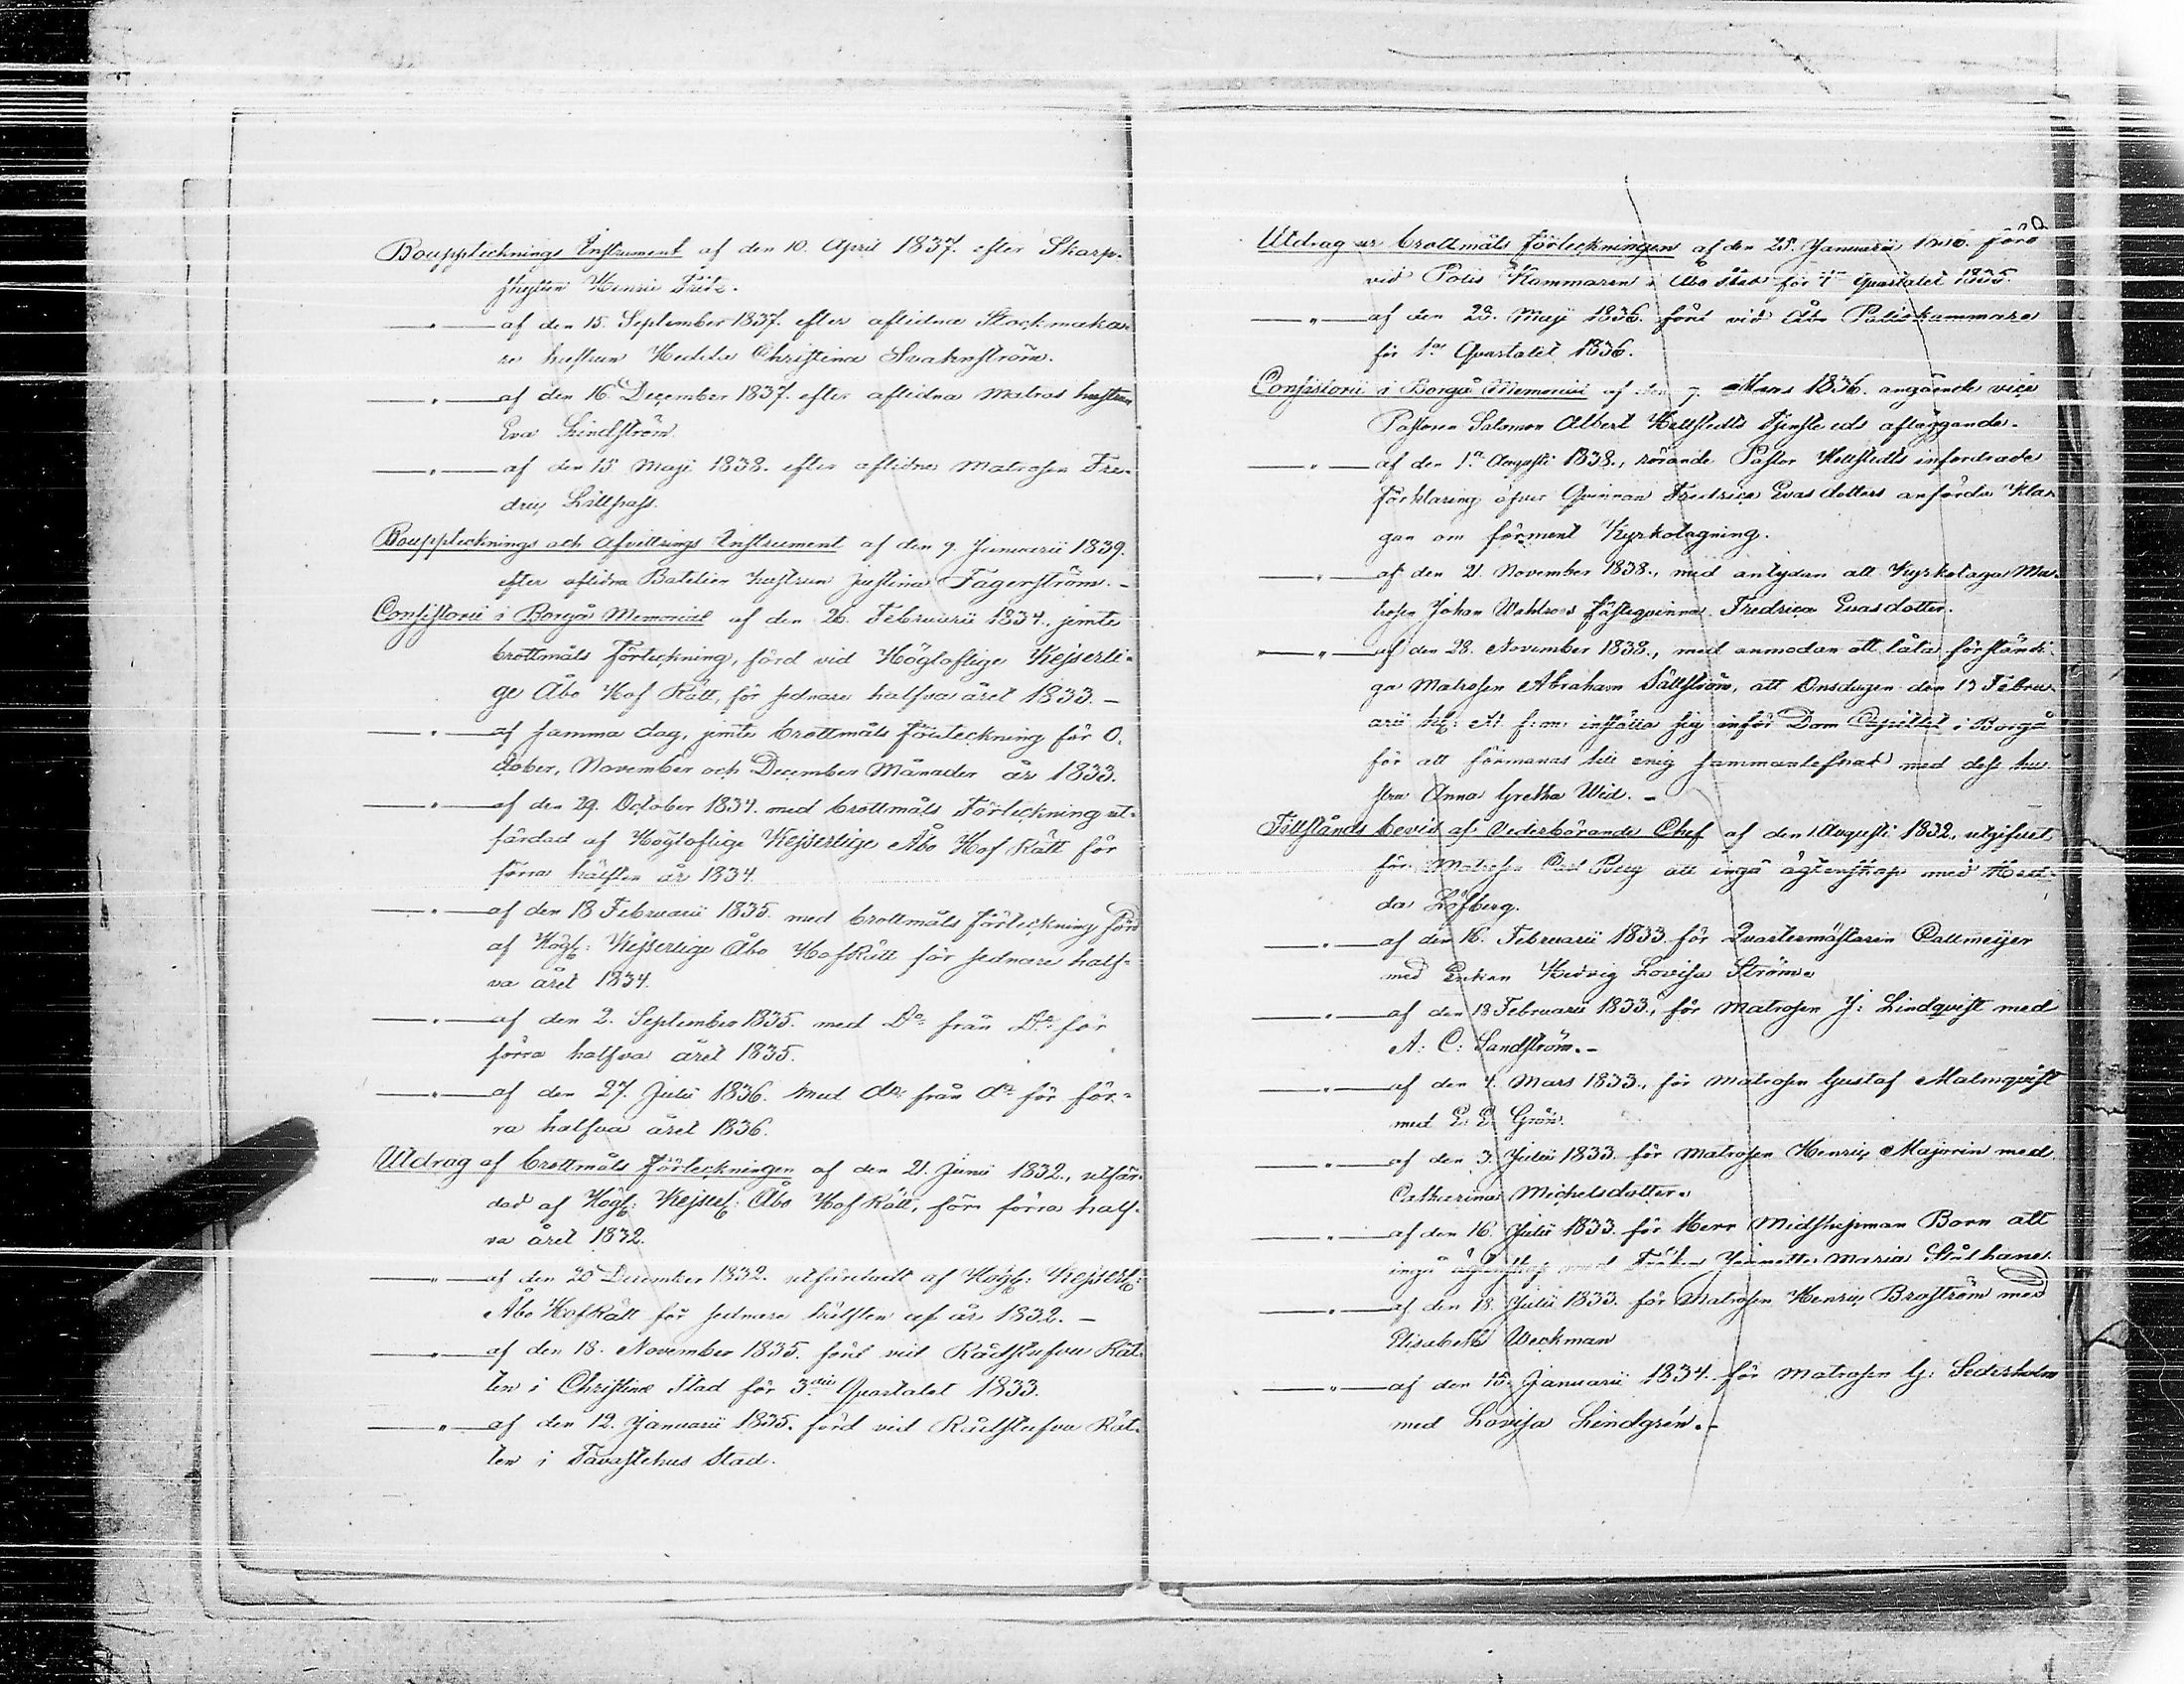 Bouppteknings Instrument af den 10. April 1837. efter Skarp-
skytten Henric Fritz.
—"— af den 15. September 1837. efter aflidna Stockmaka-
re hustrun Hedda Christina Svahnström.
—"— af den 16 December 1837. efter aflidna Matros hustrun
Eva Lindström
—"— af den 15 Maji 1838. efter aflidne Matrosen Fre-
dric Lillpass.
Bouppteknings och Afvittrings Instrument af den 9. Januarii 1839.
efter aflidna Batelien hustrun Justina Fagerström. -
Consistorii i Borgå Memorial af den 26. Februarii 1834., jemte
brottmåls Förteckning, förd vid Högloflige Kejserli-
ge Åbo Hof Rätt, för sednare halfva året 1833. -
—"— af samma dag, jemte brottmåls förteckning för O-
ctober, November och December Månader år 1833.
—"— af den 29. October 1834. med brottmåls Förteckning ut-
färdad af Högloflige Kejserlige Åbo Hof Rätt för
förra hälften år 1834.
—"— af den 18 Februarii 1835. med brottmåls förteckning förd
af Högl: Kejserlige Åbo HofRätt för sednare half-
va året 1834.
—"— af den 2. September 1835. med Do från Do för
förra halfva året 1835.
—"— af den 27. Julii 1836. med do från do för för-
ra halfva året 1836.
Utdrag af brottmåls förteckningen af den 21. Junii 1832., utfär-
dad af Högl: Kejserl: Åbo Hof Rätt, för förra half-
va året 1832.
—"— af den 20 December 1832. utfärdadt af Högl: Kejserl:
Åbo HofRätt för sednare hälften af år 1832. -
—"— af den 18. November 1835. förd vid Rådstufvu Rät-
ten i Christinæ Stad för 3die Quartalet 1833.
—"— af den 12. Januarii 1835. förd vid Rådstufvu Rät-
ten i Tavastehus Stad.
Utdrag ur brottmåls förteckningen af den 25. Januarii 1836. förd
vid Polis Kammaren i Åbo Stad för 4de Quartalet 1835.
—"— af den 28. Maji 1836. förd vid Åbo Poliskammare
för 1sta Quartalet 1836.
Consistorii i Borgå Memorial af den 7. Mars 1836. angående vice
Pastoren Salomon Albert Hellstedts Tjenste eds afläggande.
—"— af den 1sta Augusti 1838., rörande Pastor Hellstedts infordrade
förklaring öfver Qvinnan Fredrica Evasdotters anförda Kla-
gan om förment Kyrkotagning.
—"— af den 21. November 1838., med antydan att Kyrkotaga Ma-
trosen Johan Wahlroos fästeqvinna Fredrica Evasdotter.
—"— af den 28. November 1838., med anmodan att låta förständi-
ga Matrosen Abraham Sällström, att Onsdagen den 13 Febru-
arii kl: 11 f: m: inställa sig inför Dom Capitlet i Borgå
för att förmanas till enig sammanlefnad med dess hu-
stru Anna Gretha Wid. -
Tillstånds bevis af Vederbörande Chef af den 1 Augusti 1832., utgifvet
för Matrosen Carl Berg att ingå ägtenskap med Hed-
da Löfberg.
—"— af den 16. Februarii 1833. för Quartermästaren Callmeijer
med Enkan Hedvig Lovisa Ström.
—"— af den 18 Februarii 1833., för Matrosen J: Lindqvist med
A: C: Sandström. -
—"— af den 4. Mars 1833., för Matrosen Gustaf Malmqvist
med E. E. Grön.
—"— af den 3. Julii 1833. för Matrosen Henric Majorin med
Catharina Michelsdotter.
—"— af den 16. Julii 1833. för Herr Midshipman Born att
ingå ägtenskap med Fröken Jeannette Maria Stålhane.
—"— af den 18. Julii 1833. för Matrosen Henric Broström med
Elisabeth Weckman
—"— af den 15. Januarii 1834. för Matrosen G: Sederholm
med Lovisa Lindgrén. -